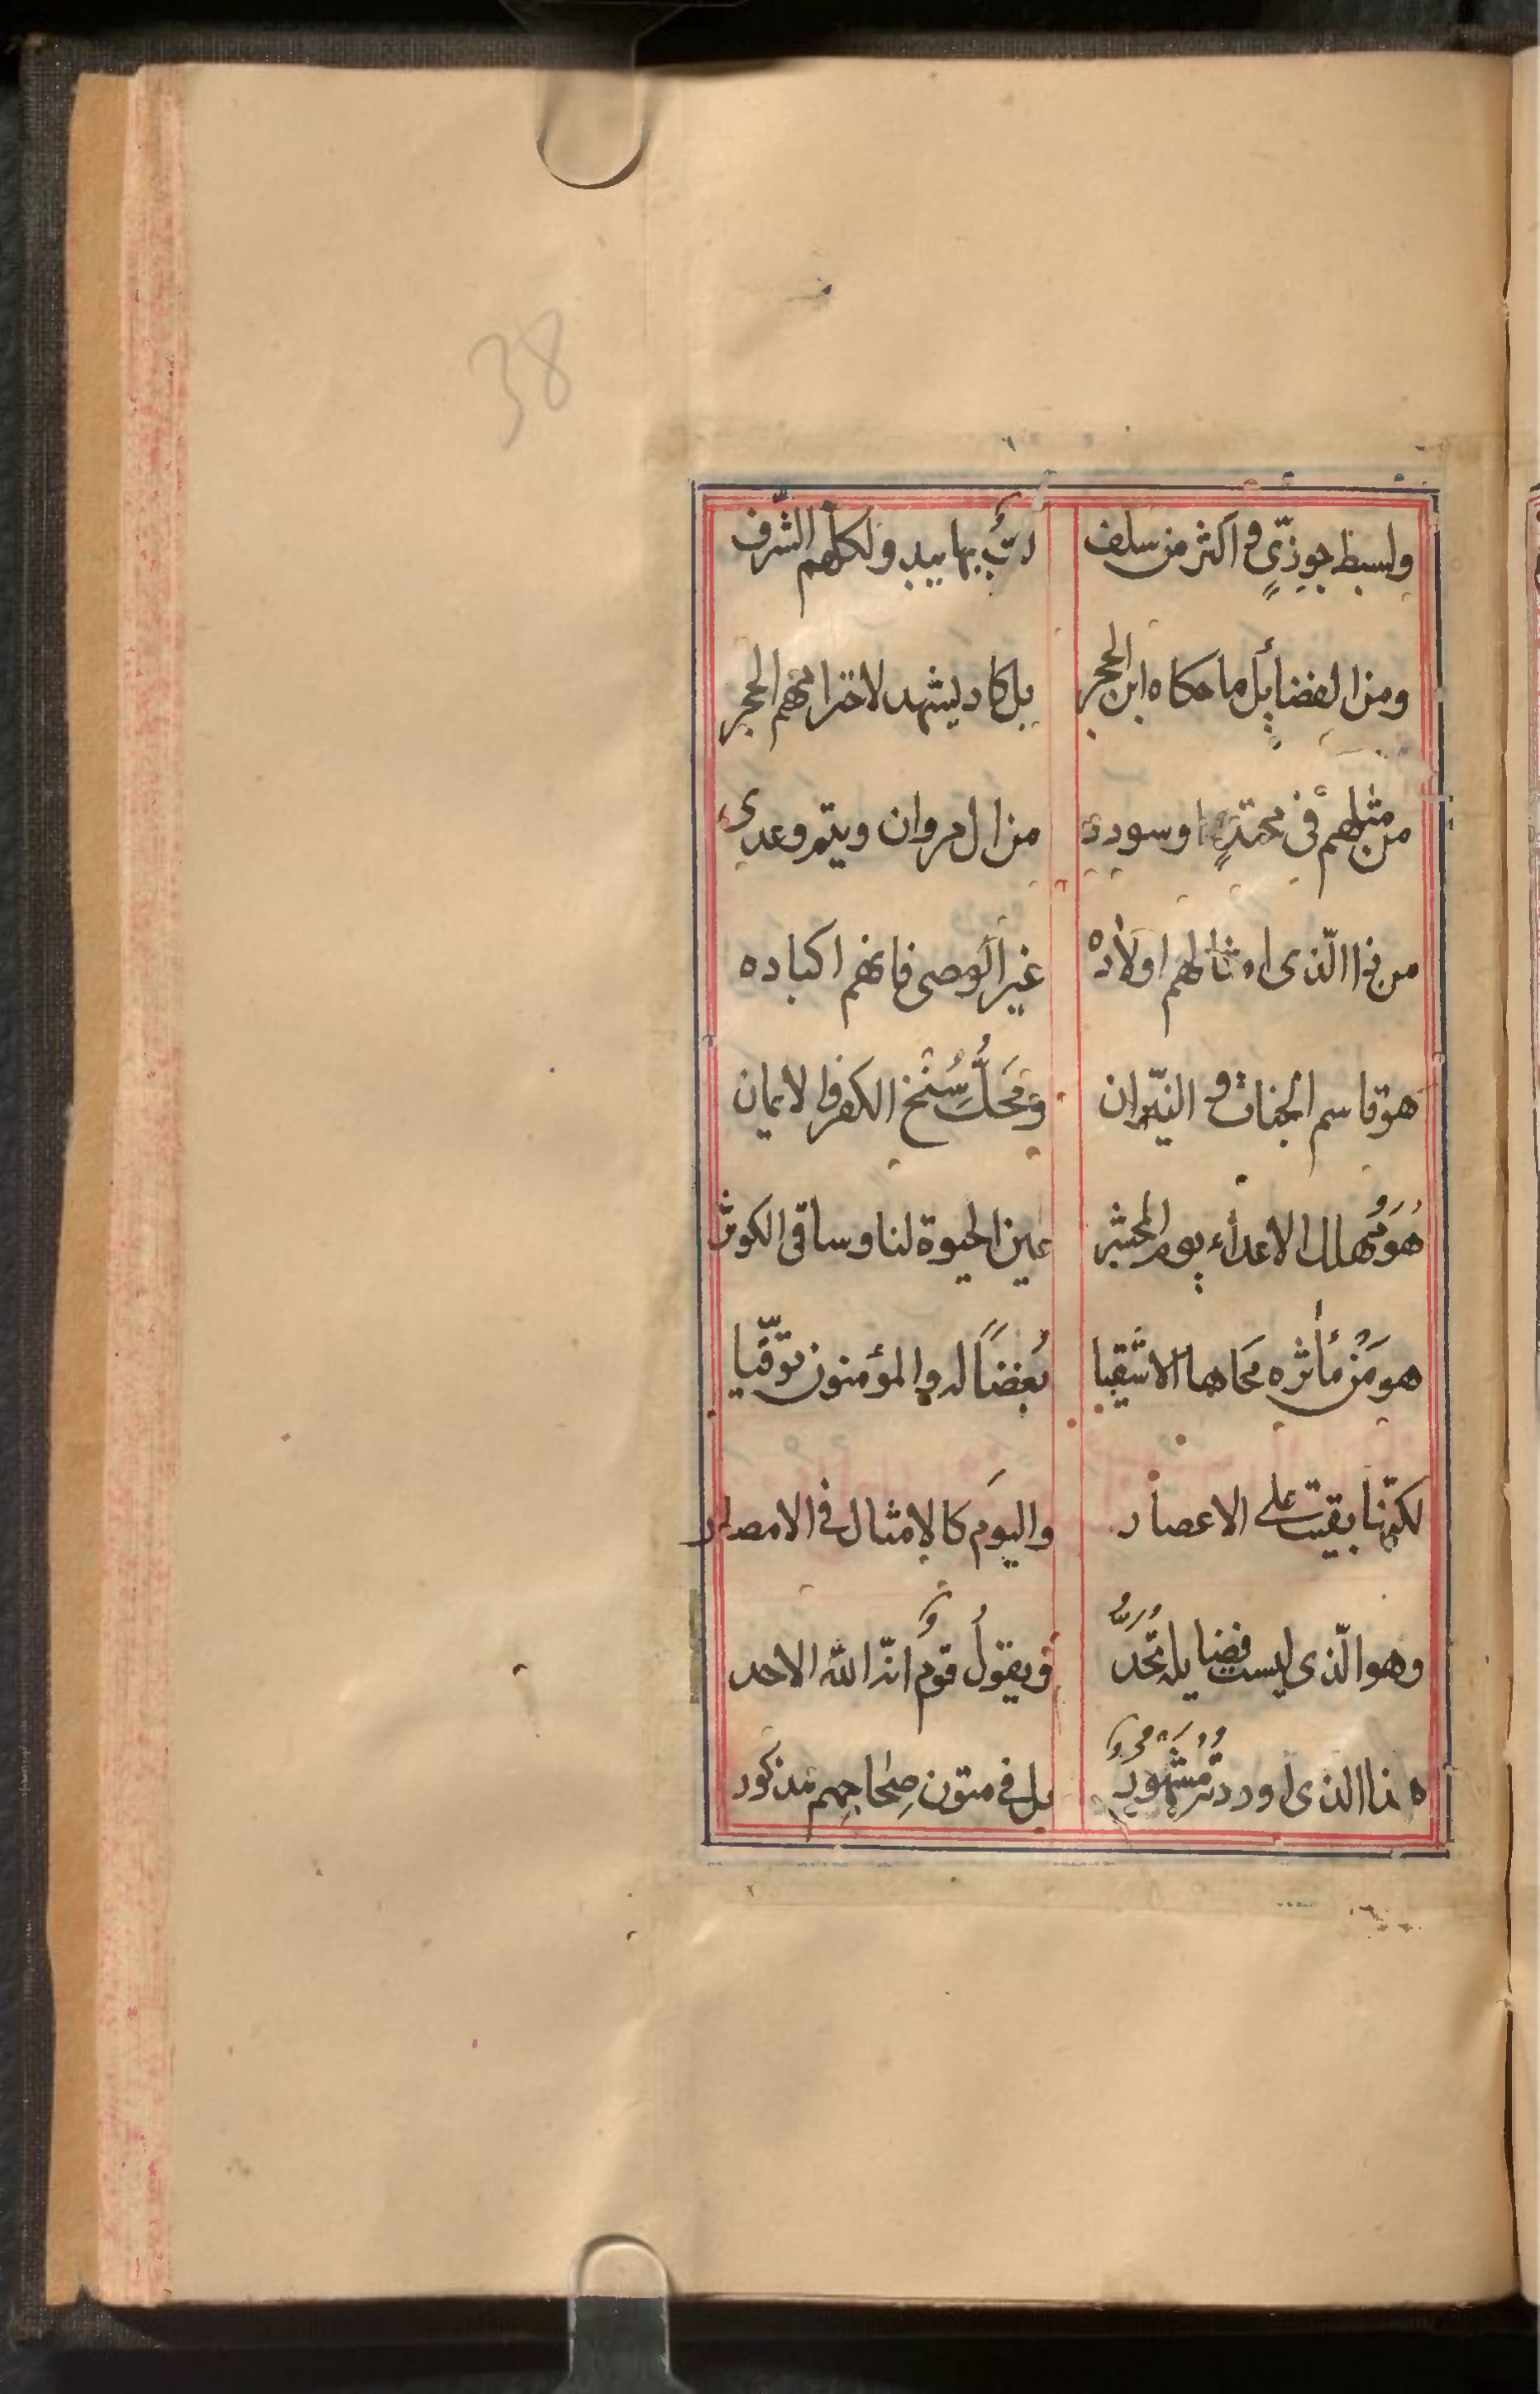 38
ولسبط جوزیٍّ و اكثر من سلف كتب بها بيد ولكلهم الشّرف
ومن الفضائل ما حكاه ابن الحجر بل كاد ليشهد لاحترامهم الحجر
من مثلهم فى محتدٍ او سودد من ال مروان ويتم وعدى
من ذا الّذى امثالهم اولاده غير الوصى فانهم اكباده
هو قاسم الجنات و النيّران وَمَحَلُّ سُنْخِ الكفر و الايمان
هُوَ مُهلك الاعداء يوم المحشر عين الحيوة لنا و ساقى الكوثر
هو مَنْ مٰاثره مَحَاها الاشقيا بُغضًا له و المؤمنون توقّيا
لكنّها بقيت على الاعصار واليوَم كالامثال فى الامصار
وهو الّذى ليست فضايله تُحَدُّ و يقولُ قومٌ انّه الله الاحد
هذا الذى اوردته مَشهُورٌ بل فى متون صِحٰاحِهم مذكور